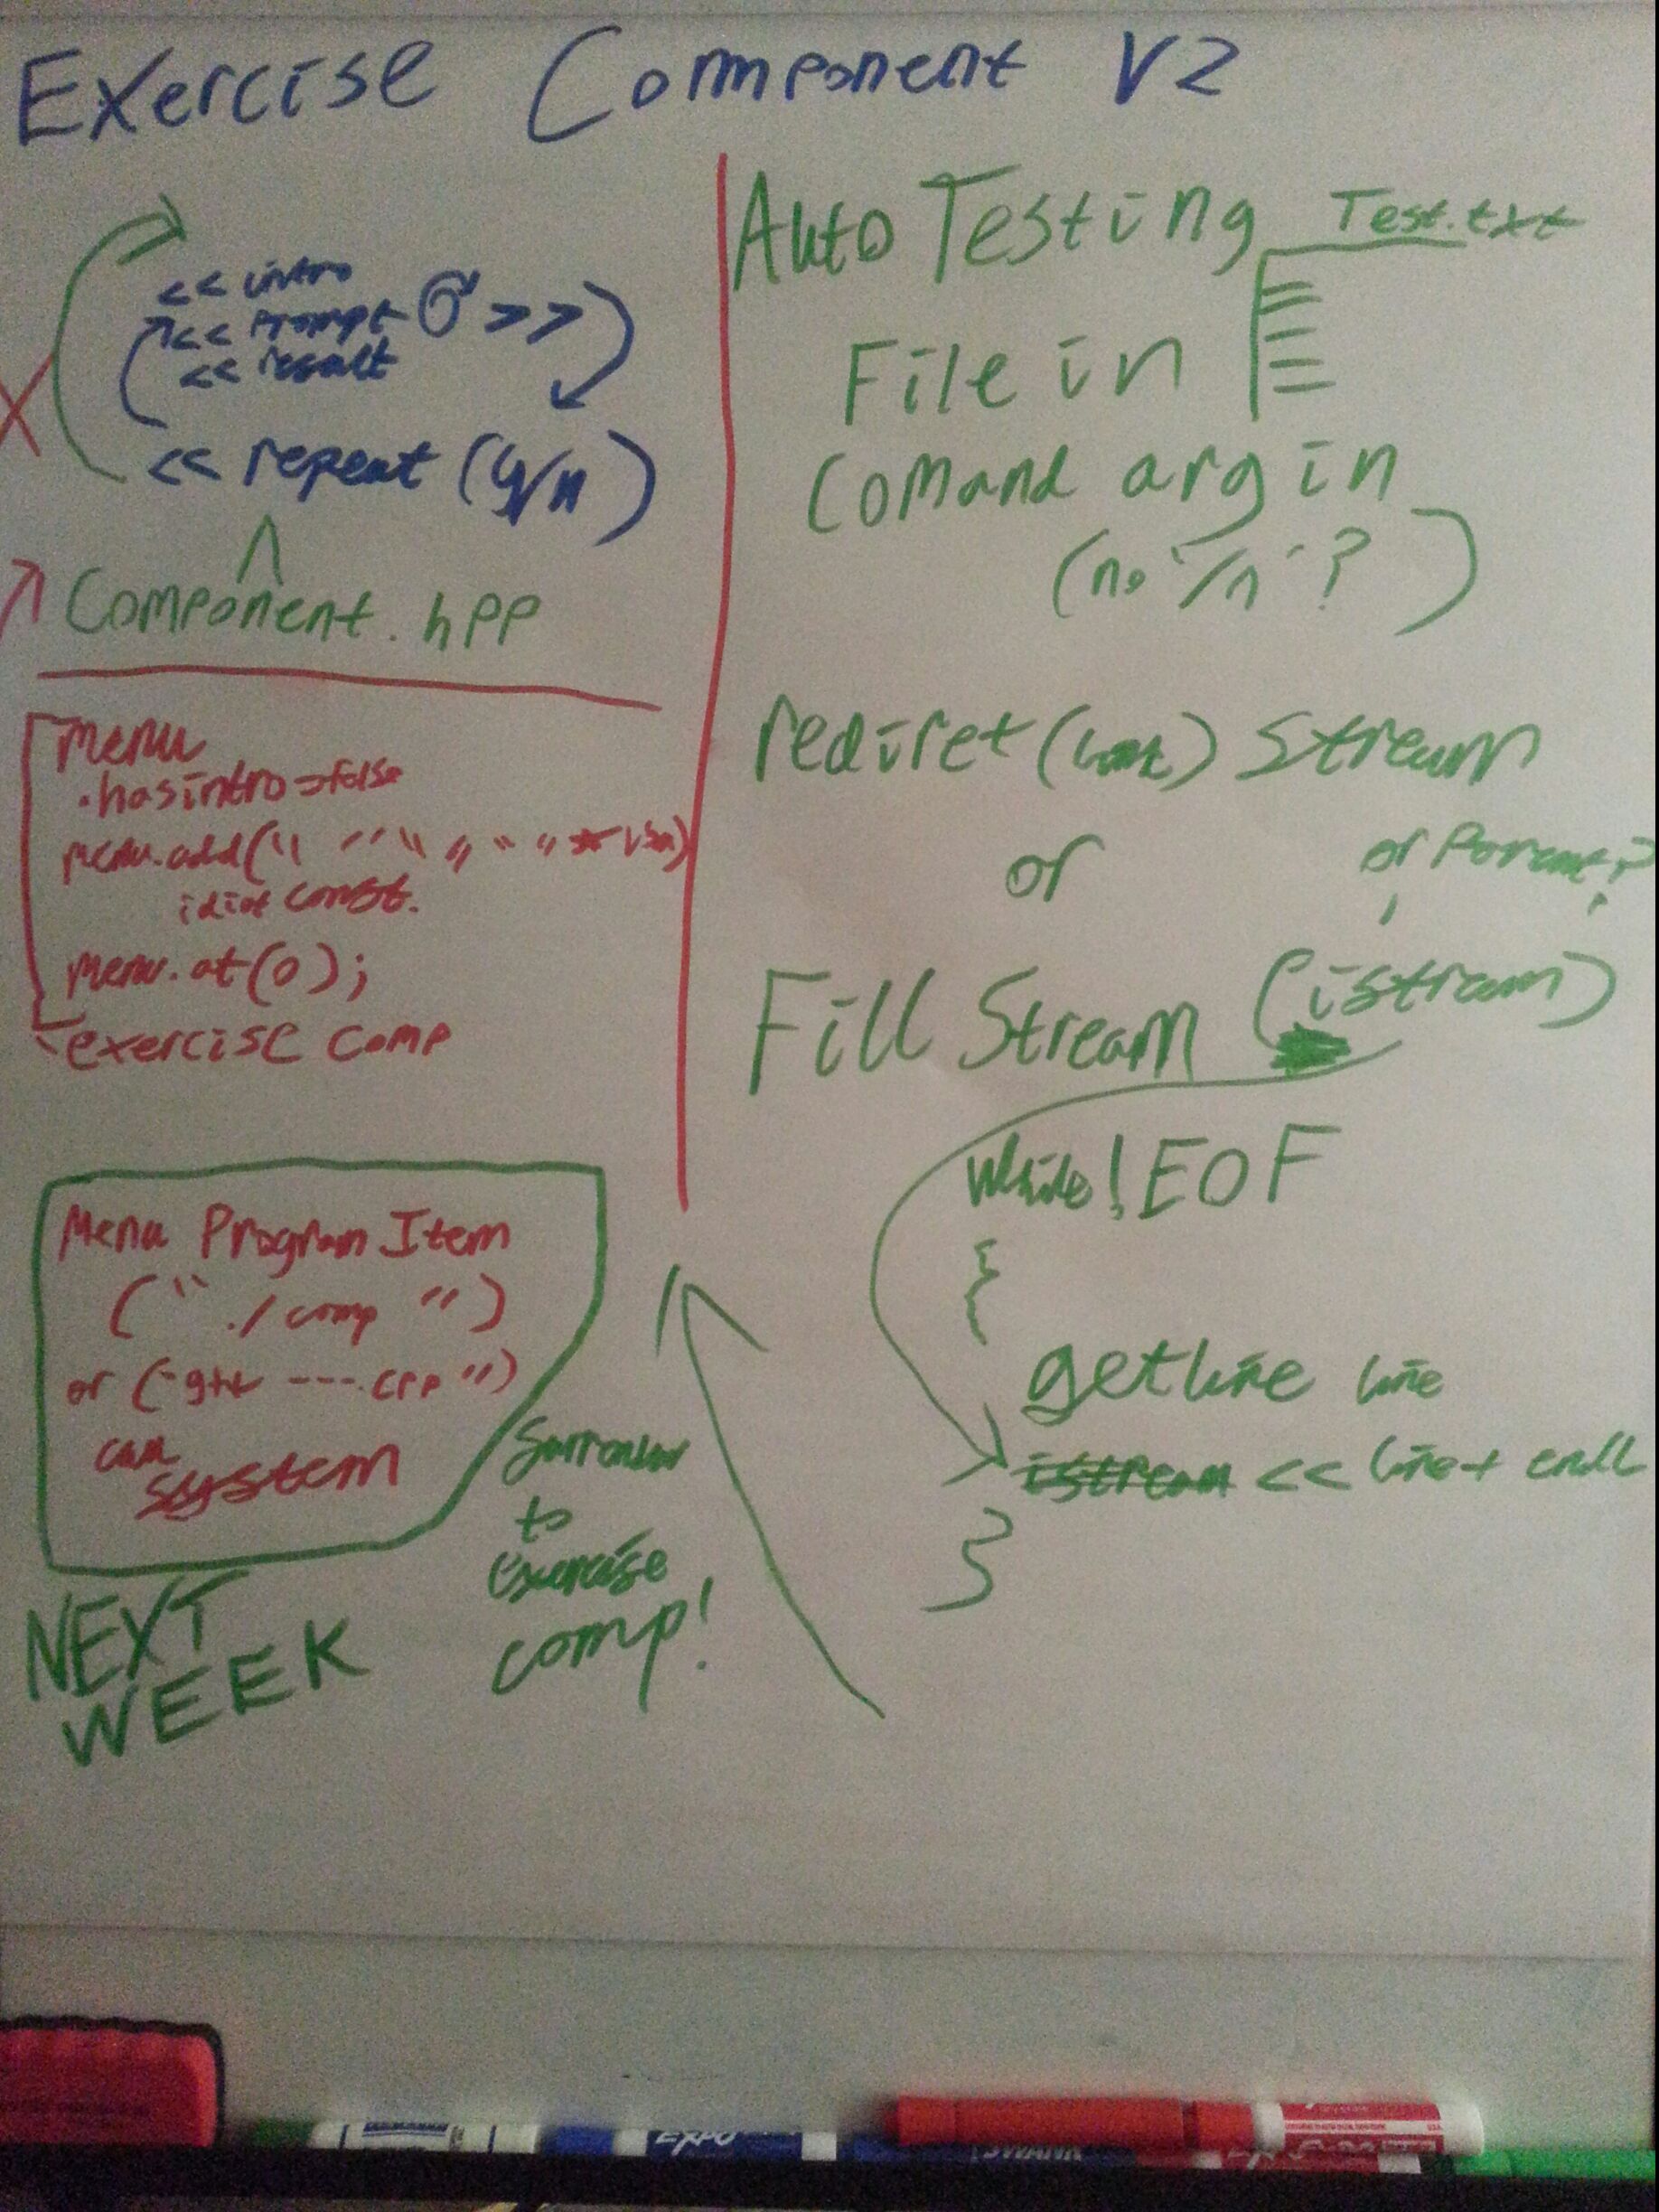 Exercise Component V2
<< intro
<< Prompt >>
<< result
<< repeat (y/n)
^
Component.hpp
menu
.hasintro=false
menu.add("
idiot const.
menu.at(0);
exercise comp
Menu Program Item
(" ./comp ")
or ( .cpp ")
system
NEXT
WEEK
to
exercise
comp!
Auto Testing
Test.txt
File in
Comand arg in
(no '/n' ?)
rediret ( ) Stream
or
or Parent?
Fill Stream (istream)
While !EOF
{
getline line
istream << line + endl
}
EXPO
SWANK